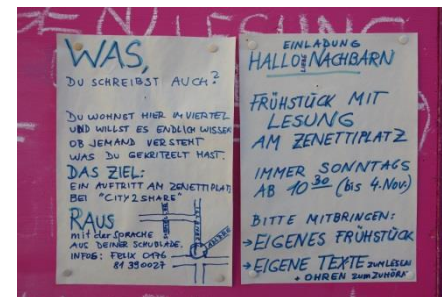 WAS,
DU SCHREIBST AUCH?
DU WOHNST HIER IM VIERTEL
UND WILLST ES ENDLICH WISSEN
OB JEMAND VERSTEHT
WAS DU GEKRITZELT HAST.
DAS ZIEL:
EIN AUFTRITT AM ZENETTIPLATZ
BEI "CITY2SHARE"
RAUS
mit der SPRACHE
AUS DEINER SCHUBLADE.
INFOS: FELIX 0176
81 390027
EINLADUNG
HALLO LIEBE NACHBARN
FRÜHSTÜCK MIT
LESUNG
AM ZENETTIPLATZ
IMMER SONNTAGS
AB 10 30 (bis 4. Nov.)
BITTE MITBRINGEN:
→EIGENES FRÜHSTÜCK
→EIGENE TEXTE ZUM LESEN
+ OHREN ZUM ZUHÖR